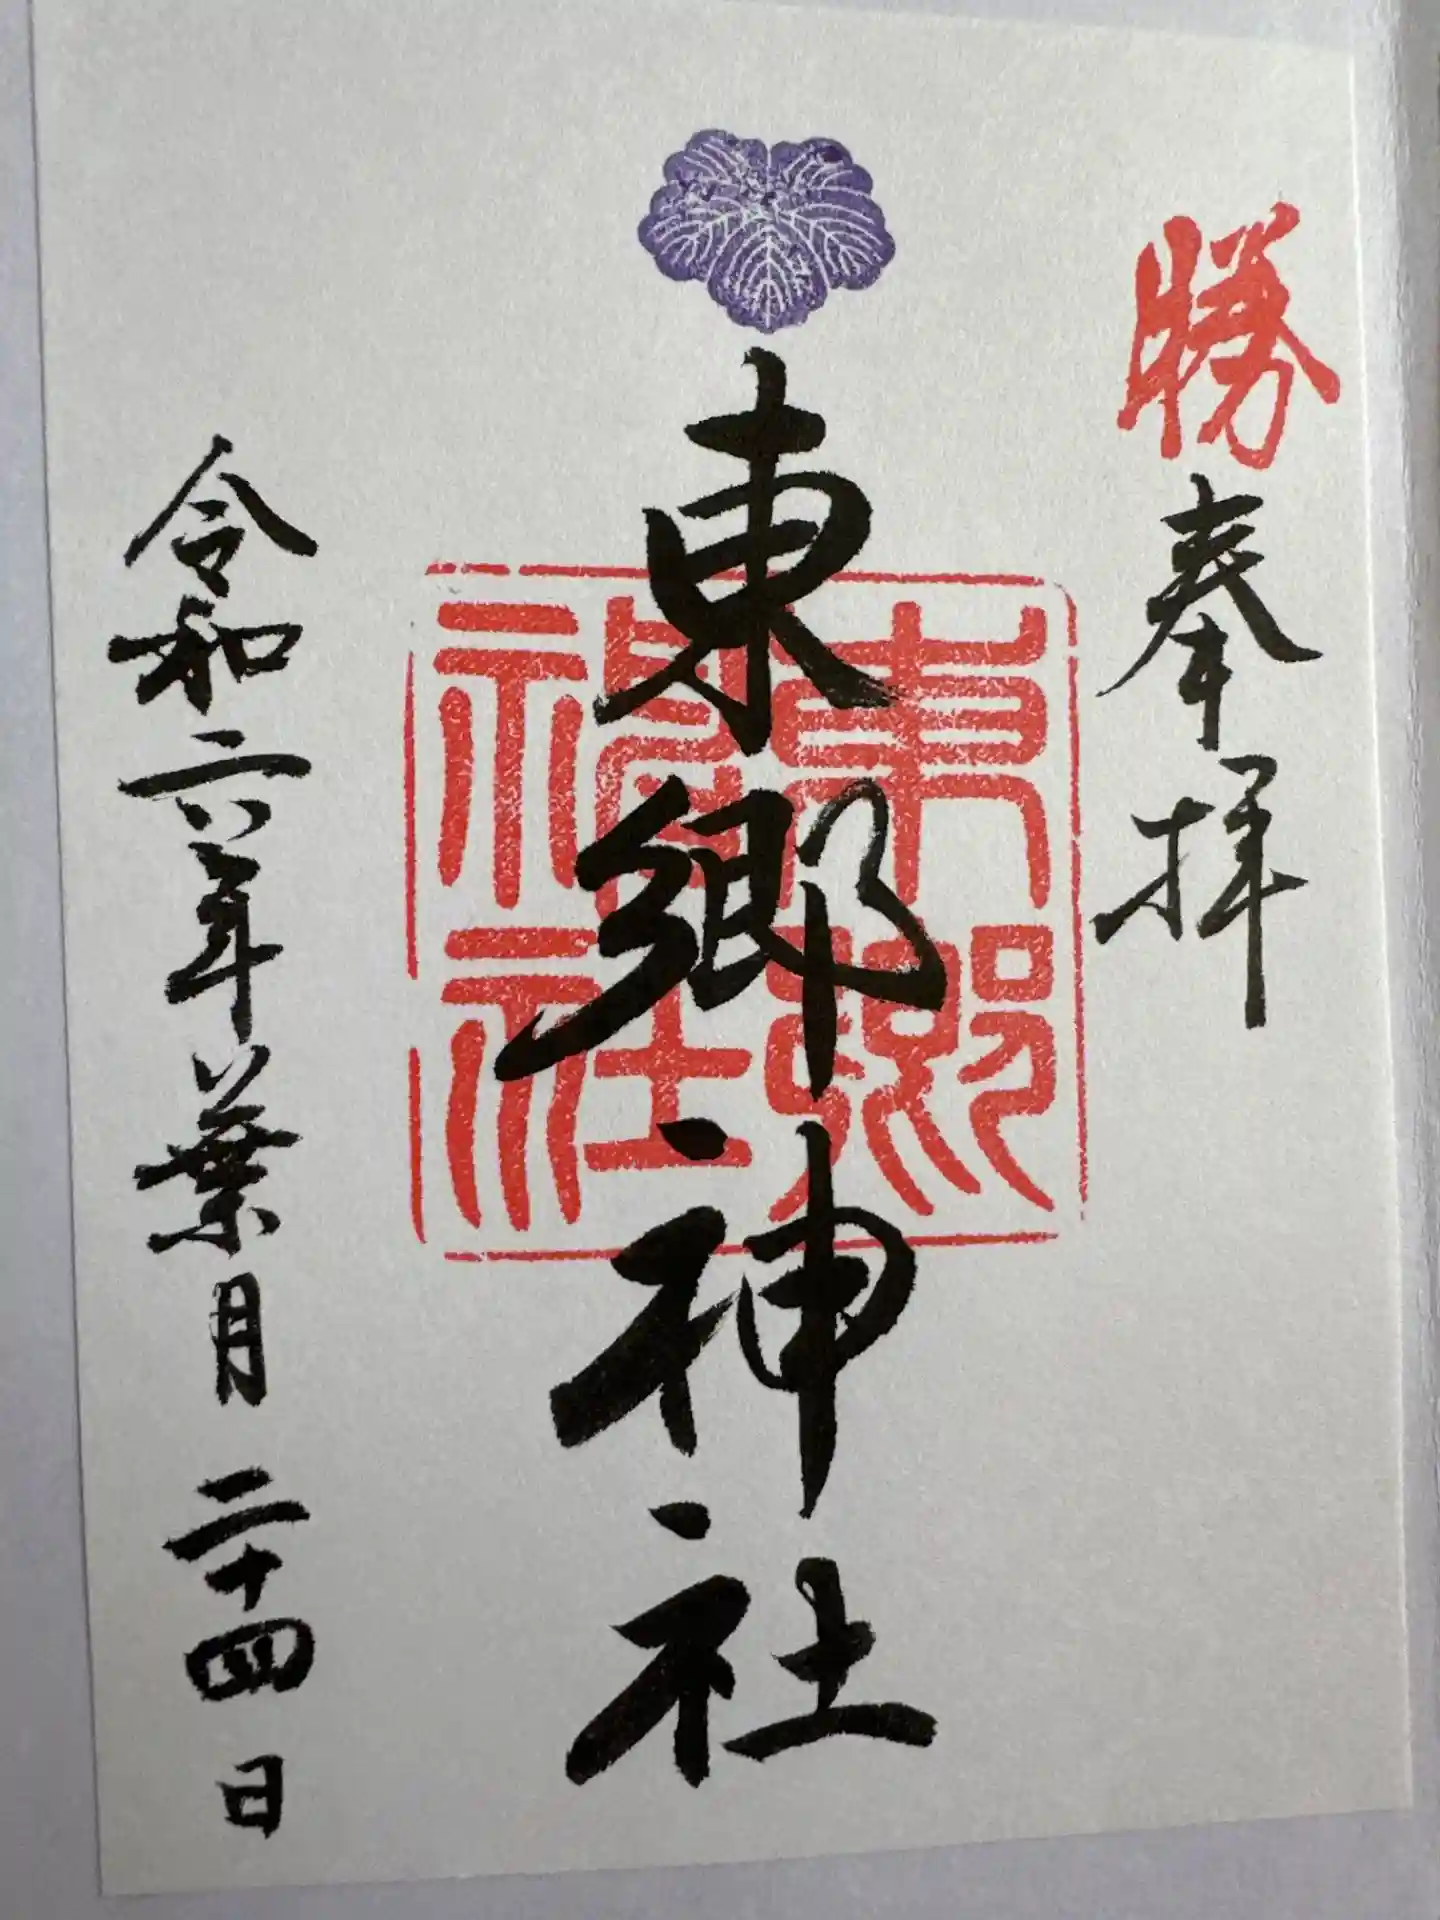 勝
奉拝
東郷神社
東郷神社
令和六年葉月二十四日